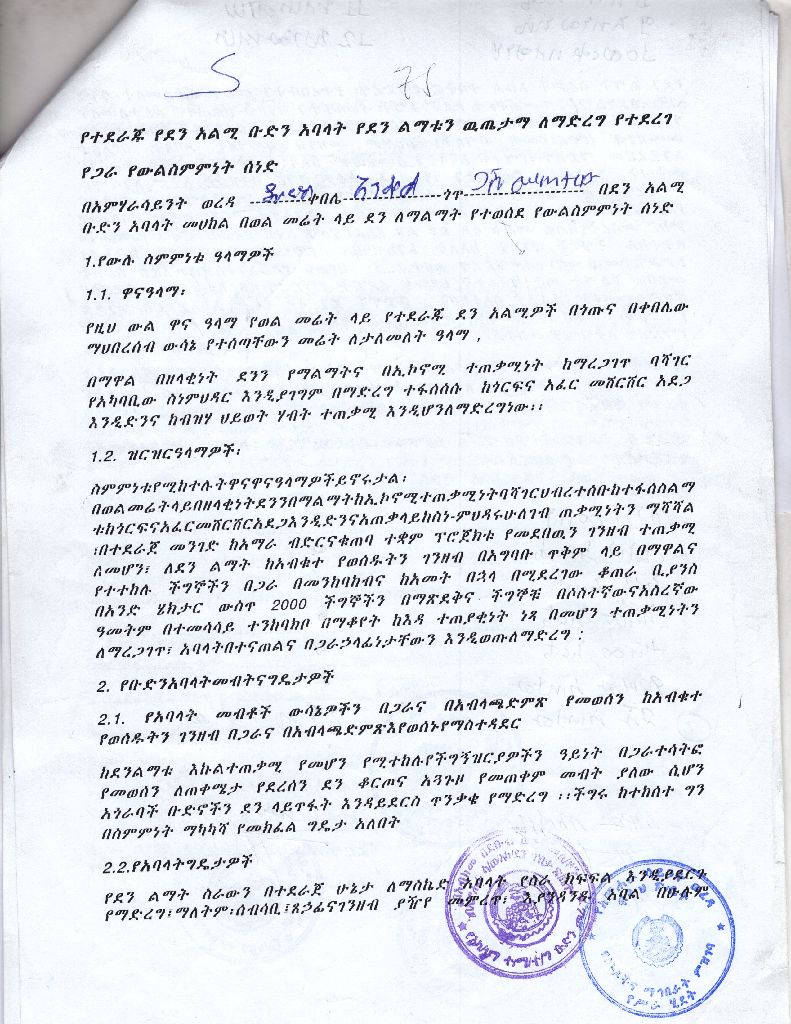 75
የተደራጁ የደን አልሚ ቡድን አባላት የደን ልማቱን ዉጤታማ ለማድረግ የተደረገ
የጋራ የውልስምምነት ሰነድ
በአምሃራሳይንት ወረዳ ቀበሌ ጎጥ በደን አልሚ
ቡድን አባላት መሀከል በወል መሬት ላይ ደን ለማልማት የተወሰደ የውልስምምነት ሰነድ
1.የውሉ ስምምነቱ ዓላማዎች
1.1. ዋናዓላማ፡
የዚህ ውል ዋና ዓላማ የወል መሬት ላይ የተደራጁ ደን አልሚዎች በጎጡና በቀበሌው
ማህበረሰብ ውሳኔ የተሰጣቸውን መሬት ለታለመለት ዓላማ ,
በማዋል በዘላቂነት ደንን የማልማትና በኢኮኖሚ ተጠቃሚነት ከማረጋገጥ ባሻገር
የአካባቢው ስነምህዳር እንዲያገግም በማድረግ ተፋሰሱ ከጎርፍና አፈር መሸርሸር አደጋ
እንዲድንና ከብዝሃ ህይወት ሃብት ተጠቃሚ እንዲሆንለማድረግነው፡፡
1.2. ዝርዝርዓላማዎች፡
ስምምነቱየሚከተሉትዋናዋናዓላማዎችይኖሩታል፡
በወልመሬትላይበዘላቂነትደንንበማልማትከኢኮኖሚተጠቃሚነትባሻገርህብረተሰቡከተፋሰስልማ
ቱከጎርፍናአፈርመሸርሸርአደጋእንዲድንናአጠቃላይከስነ-ምህዳሩሁለገብ ጠቃሚነትን ማሻሻል
፣በተደራጀ መንገድ ከአማራ ብድርናቁጠባ ተቋም ፕሮጀክቱ የመደበዉን ገንዘብ ተጠቃሚ
ለመሆን፣ ለደን ልማት ከአብቁተ የወሰዱትን ገንዘብ በአግባቡ ጥቅም ላይ በማዋልና
የተተከሉ ችግኞችን በጋራ በመንከባከብና ከአመት በኋላ በሚደረገው ቆጠራ ቢያንስ
በአንድ ሄክታር ውስጥ 2000 ችግኞችን በማጽደቅና ችግኞቹ በሶስተኛውናአስረኛው
ዓመትም በተመሳሳይ ተንከባክቦ በማቆየት ከእዳ ተጠያቂነት ነጻ በመሆን ተጠቃሚነትን
ለማረጋገጥ፣ አባላትበተናጠልና በጋራኃላፊነታቸውን እንዲወጡለማድረግ ፡
2. የቡድንአባላትመብትናግዴታዎች
2.1. የአባላት መብቶች ውሳኔዎችን በጋራና በአብላጫድምጽ የመወሰን ከአብቁተ
የወሰዱትን ገንዘብ በጋራና በአብላጫድምጽእየወሰኑየማስተዳደር
ከደንልማቱ እኩልተጠቃሚ የመሆን የሚተከሉየችግኝዝርያዎችን ዓይነት በጋራተሳትፎ
የመወሰን ለጠቀሜታ የደረሰን ደን ቆርጦና አጓጉዞ የመጠቀም መብት ያለው ሲሆን
አጎራባች ቡድኖችን ደን ላይጥፋት እንዳይደርስ ጥንቃቄ የማድረግ ፡፡ችግሩ ከተከሰተ ግን
በስምምነት ማካካሻ የመክፈል ግዴታ አለበት
2.2.የአባላትግዴታዎች
የደን ልማት ስራውን በተደራጀ ሁኔታ ለማስኬድ አባላት የስራ ክፍፍል እንዲያደርጉ
የማድረግ፣ማለትም፡ሰብሳቢ፣ጸኃፊናገንዘብ ያዥየ መምረጥ፣ እያንዳንዱ አባል በሁሉም